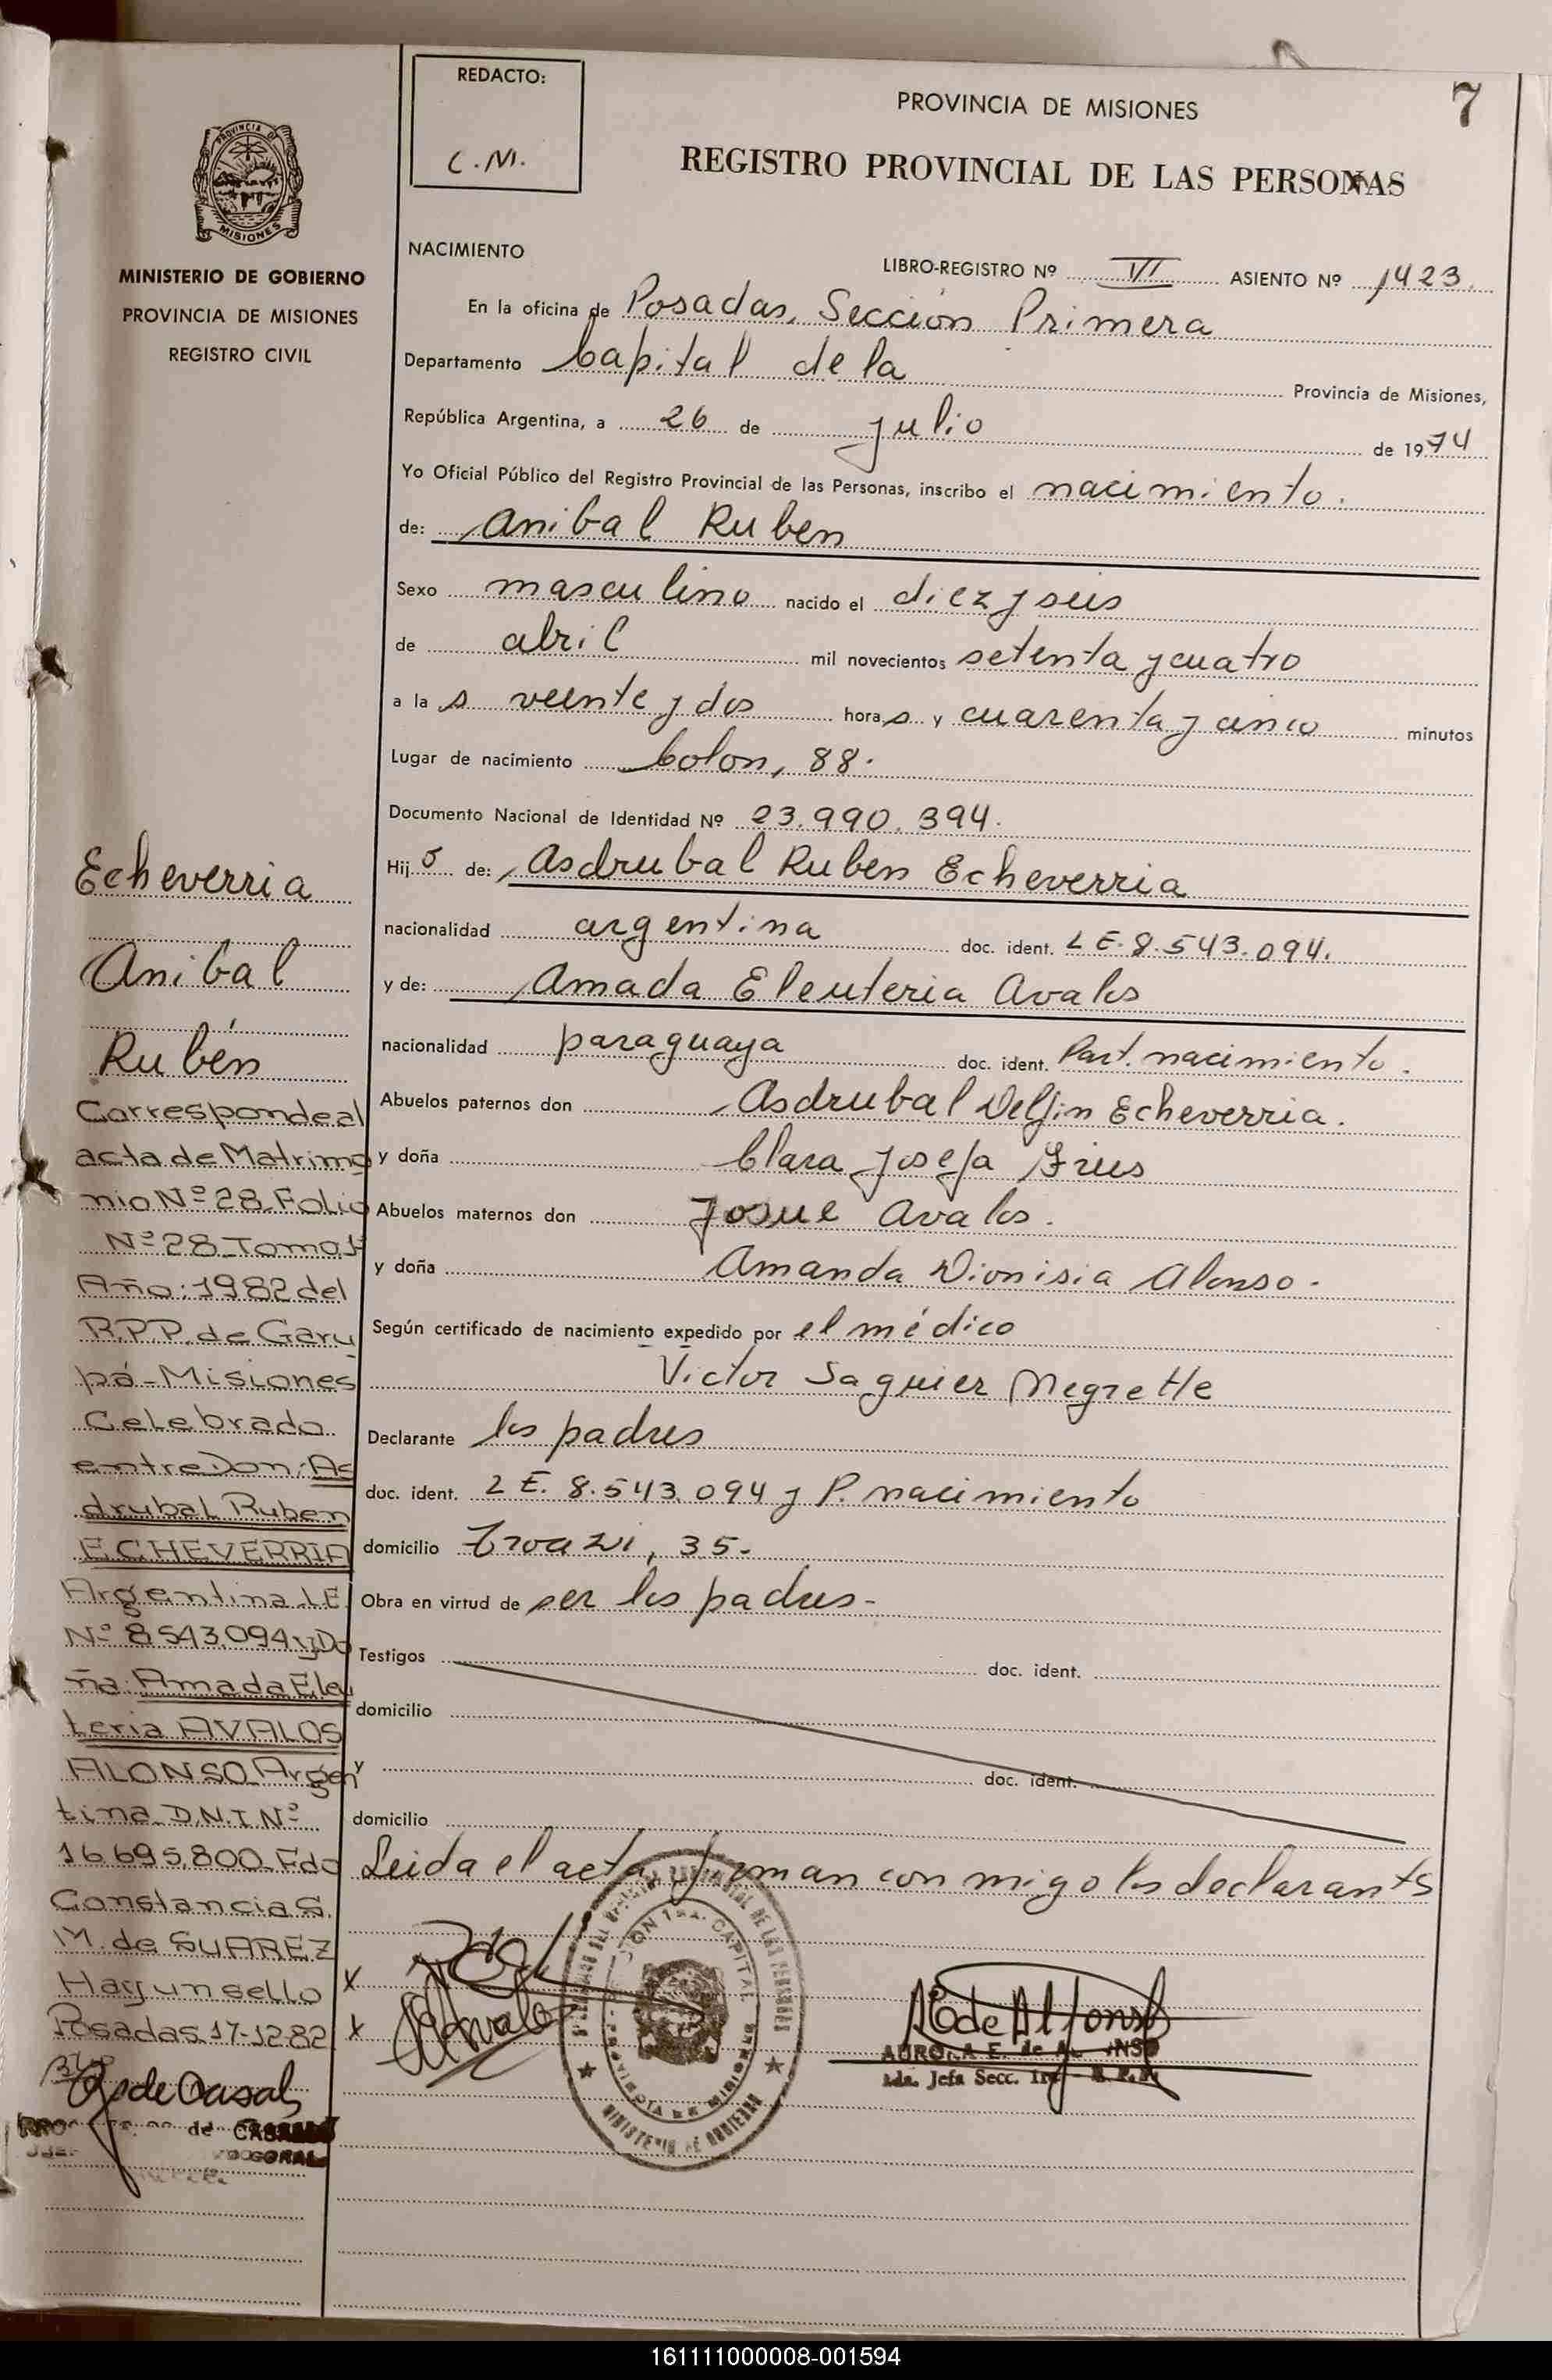 REDACTO:
C.M.
7
PROVINCIA DE MISIONES
REGISTRO PROVINCIAL DE LAS PERSONAS
PROVINCIA DE
MISIONES
MINISTERIO DE GOBIERNO
PROVINCIA DE MISIONES
REGISTRO CIVIL
NACIMIENTO
LIBRO-REGISTRO Nº VI ASIENTO Nº 1423.
En la oficina de Posadas, Sección Primera
Departamento Capital de la Provincia de Misiones,
República Argentina, a 26 de julio de 1974
Yo Oficial Público del Registro Provincial de las Personas, inscribo el nacimiento.
de: Anibal Ruben
Sexo masculino nacido el diez y seis
de abril mil novecientos setenta y cuatro
a la s veinte y dos hora s y cuarenta y cinco minutos
Lugar de nacimiento Colon, 88.
Documento Nacional de Identidad Nº 23.990.394.
Hij o de: Asdrubal Ruben Echeverria
nacionalidad argentina doc. ident. L E. 8.543.094.
y de: Amada Eleuteria Avalos
nacionalidad paraguaya doc. ident. Part. nacimiento.
Abuelos paternos don Asdrubal Delfin Echeverria.
y doña Clara Josefa
Abuelos maternos don Josue Avalos.
y doña Amanda Dionisia Alonso.
Según certificado de nacimiento expedido por el médico
Victor Saguier Negrette
Declarante los padres
doc. ident. L E. 8.543.094 y P. nacimiento
domicilio 35.
Obra en virtud de ser los padres-
Testigos doc. ident.
domicilio
y doc. ident.
domicilio
Leida el acta, firman conmigo los declarants
x
x
AURORA E. de ALFONSO
Jefa Secc.
MINISTERIO DE GOBIERNO
Echeverria
Anibal
Rubén
Corresponde al
acta de Matrimo
nio Nº 28 Folio
Nº 28 Tomo 1º
Año: 1982 del
R.P.P. de Garu
pá-Misiones
Celebrado
entre Don: As
drubal Ruben
ECHEVERRIA
Argentina L.E.
Nº 8543.094 y Do
ña: Amada Eleu
teria AVALOS
ALONSO Argen
tina D.N.I Nº
16.695.800 Fdo
Constancia S.
M. de SUAREZ
Hay un sello
Posadas 17-12-82
de
161111000008-001594